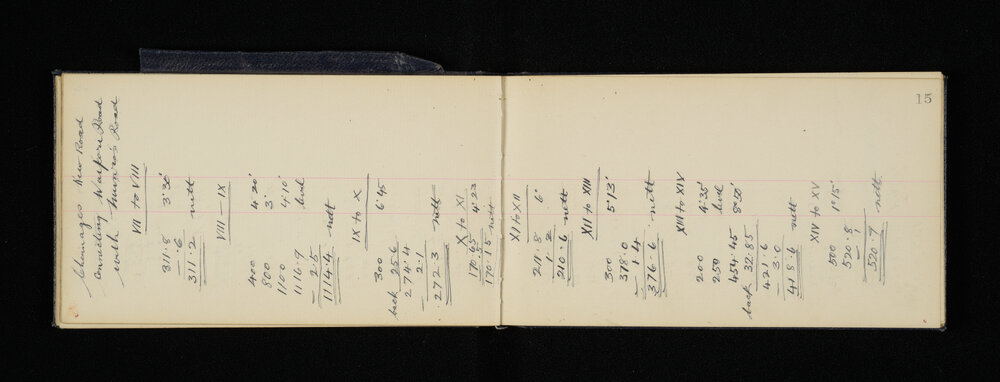 15
Chainages New Road
Connecting Waipori Road
with Munro's Road
VII to VIII
311.8 3°30'
- .6
311.2 nett
VIII – IX
400 4°20'
800 3°
1100 4°10'
1116.9 level
- 2.5
1114.4 nett
IX to X
300 6°45
back 25.6
274.4
- 2.1
272.3 nett
X to XI
170.65 4°23
.5
170.15 nett
XI to XII
211.8 6°
1.2
210.6 nett
XII to XIII
300 5°13'
378.0
- 1.4
376.6 nett
XIII to XIV
200 4°35'
250 level
454.45 8°50'
back 32.85
421.6
- 3.0
418.6 nett
XIV to XV
500 1°15'
520.8
- .1
520.7 nett